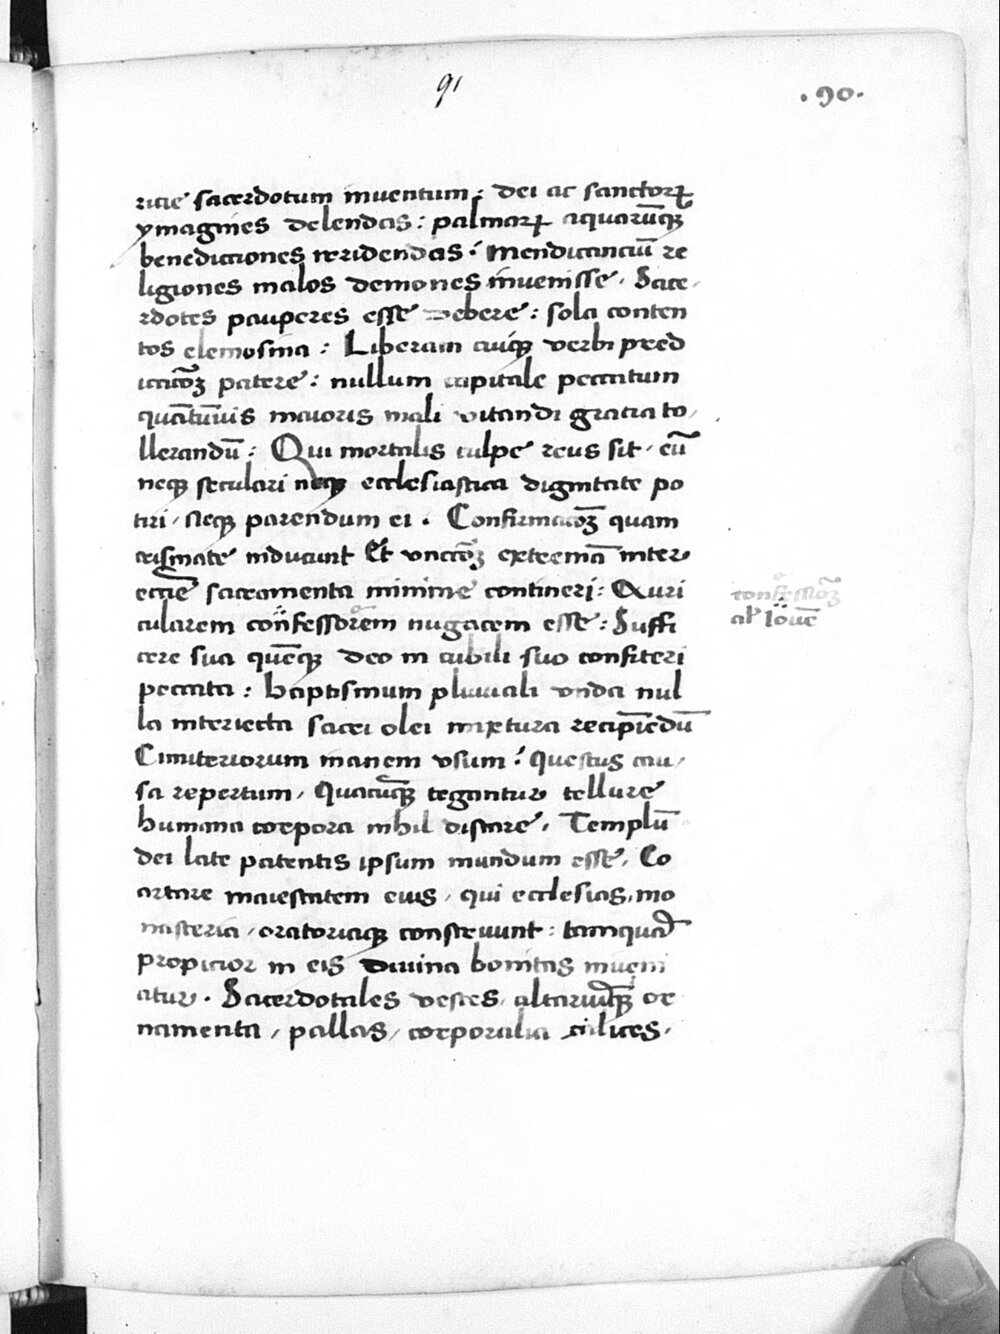 91
.90.
ricie sacerdotum inuentum: dei ac sanctoꝝ
ymagines delendas: palmaꝝ aquarūqꝫ
benedictiones reridendas: Mendicanciū re
ligiones malos demones inuenisse. Sace,
rdotes pauperes esse debere: sola conten
tos elemosina: Liberam cuiqꝫ verbi pred
icacōꝫ patere: nullum capitale peccatum
quātūuis maioris mali vitandi gracia to,
llerandū: Qui mortalis culpe reus sit, eū
neqꝫ seculari neqꝫ ecclesiastica dignitate po
tiri, neqꝫ parendum ei. Confirmacōꝫ quam
crismate inducunt Et vnctōꝫ extremā inter
ecctie sacramenta minime contineri: Auri
cularem confessorem nugacem esse: Suffi
cere sua quēqꝫ deo in cubili suo confiteri
peccata: baptismum pluuiali vnda nul
la interiecta sacri olei mixtura recipiēdū
Cimiteriorum inanem vsum: questus cau,
sa repertum, Quacūqꝫ tegantur tellure
humana corpora nihil distare, Templū
dei late patentis ipsum mundum esse, Co
artare maiestatem eius, qui ecclesias, mo
nasteria, oratoriaqꝫ construunt: tamquā
propicior in eis diuina bonitas inueni
atur. Sacerdotales vestes, altariūqꝫ or
namenta, pallas, corporalia calices,
confessiōꝫ
al' Ioūe